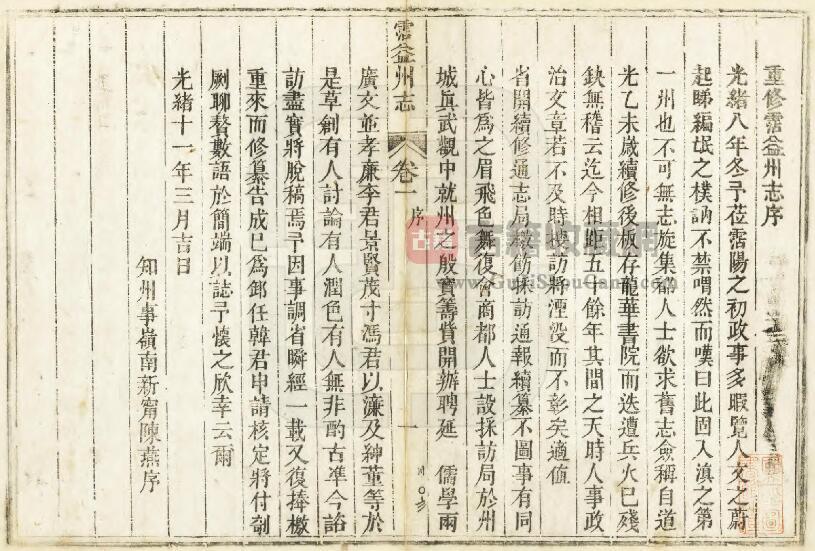 重修霑益州志序
光緒八年冬予莅霑陽之初政事多暇覽人文之蔚
起睇編氓之樸訥不禁喟然而嘆曰此固入滇之第
一州也不可無志旋集都人士欲求舊志僉稱自道
光乙未歲續修後板存龍華書院而迭遭兵火已殘
缺無稽云迄今相距五十餘年其間之天時人事政
治文章若不及時搜訪將湮没而不彰矣適值
省開續修通志局檄飭採訪通報續纂不圖事有同
心皆為之眉飛色舞復會商都人士設採訪局於州
城真武觀中就州之殷實籌貲開辦聘延 儒學兩
霑益州志 卷一 序 一
廣文並孝廉李君景賢茂才馮君以濂及紳董等於
是草創有人討論有人潤色有人無非酌古準今諮
訪盡實將脫稿焉予因事調省瞬經一載又復捧檄
重來而修纂告成已為卸任韓君申請核定將付剞
劂聊贅數語於簡端以誌予懷之欣幸云爾
光緒十一年三月吉日
知州事嶺南新甯陳燕序
古籍收藏網
www.GuJiShouCang.com